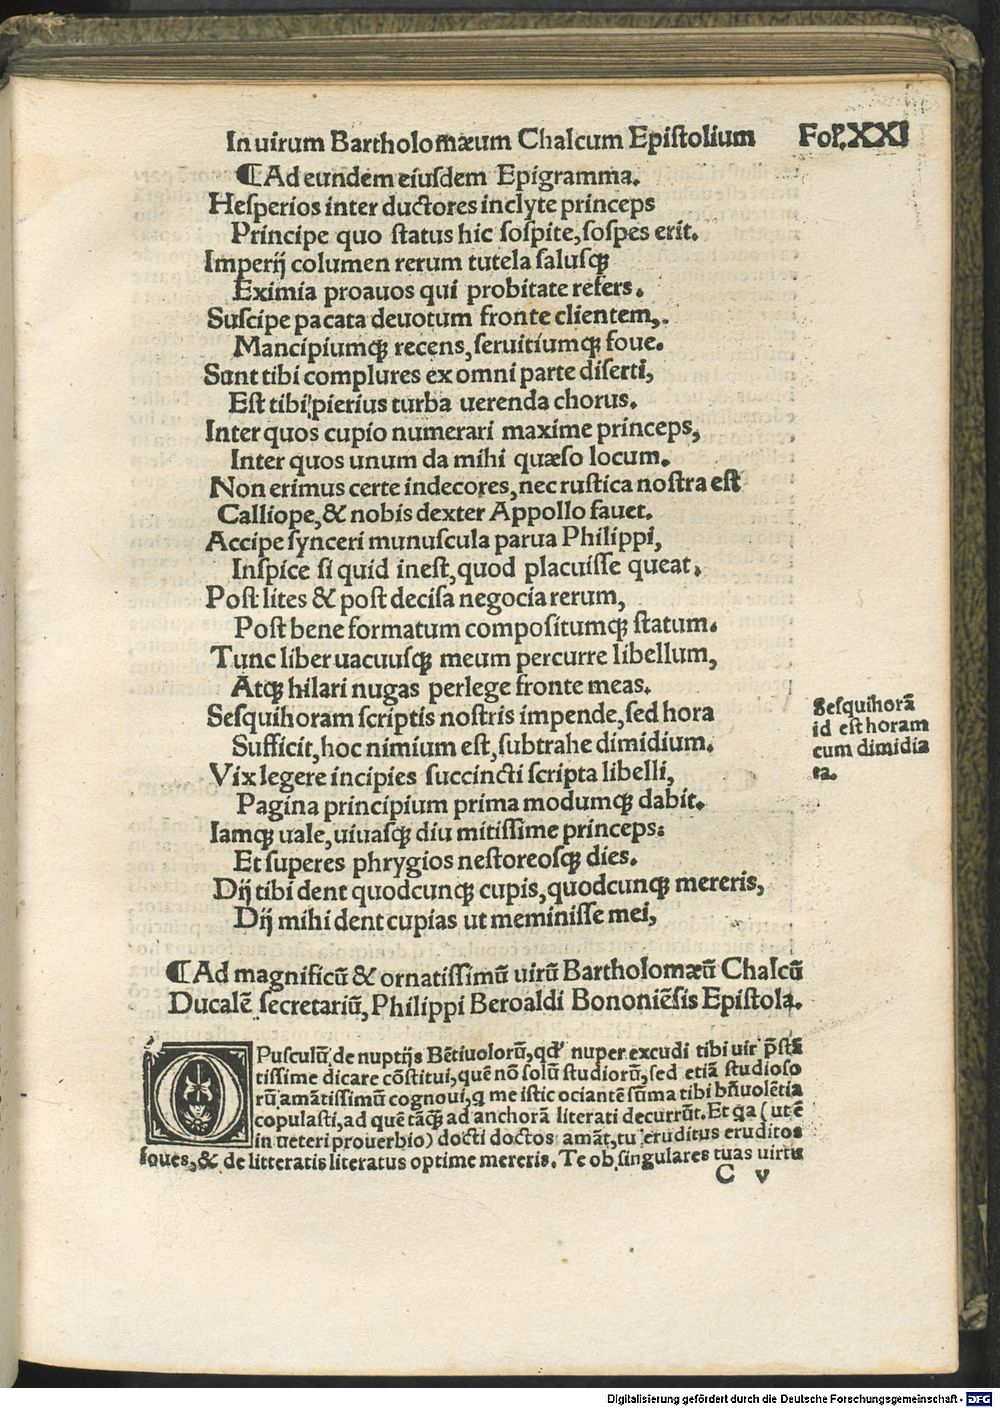 In uirum Bartholomæum Chalcum Epistolium Fol. XXI
¶Ad eundem eiusdem Epigramma.
Hesperios inter ductores inclyte princeps
Principe quo status hic sospite, sospes erit.
Imperij columen rerum tutela salusqꝫ
Eximia proauos qui probitate refers.
Suscipe pacata deuotum fronte clientem,.
Mancipiumqꝫ recens, seruitiumqꝫ foue.
Sunt tibi complures ex omni parte diserti,
Est tibi pierius turba uerenda chorus.
Inter quos cupio numerari maxime princeps,
Inter quos unum da mihi quæso locum.
Non erimus certe indecores, nec rustica nostra est
Calliope, & nobis dexter Appollo fauet.
Accipe synceri munuscula parua Philippi,
Inspice si quid inest, quod placuisse queat.
Post lites & post decisa negocia rerum,
Post bene formatum compositumqꝫ statum.
Tunc liber uacuusqꝫ meum percurre libellum,
Atqꝫ hilari nugas perlege fronte meas.
Sesquihoram scriptis nostris impende, sed hora
Sufficit, hoc nimium est, subtrahe dimidium.
Vix legere incipies succincti scripta libelli,
Pagina principium prima modumqꝫ dabit.
Iamqꝫ uale, uiuasqꝫ diu mitissime princeps:
Et superes phrygios nestoreosqꝫ dies.
Dij tibi dent quodcunqꝫ cupis, quodcunqꝫ mereris,
Dij mihi dent cupias ut meminisse mei,
Sesquihorā
id est horam
cum dimidia
ta.
¶Ad magnificū & ornatissimū uirū Bartholomæū Chalcū
Ducalē secretariū, Philippi Beroaldi Bononiēsis Epistola.
OPusculū de nuptijs Bētiuolorū, qd' nuper excudi tibi uir p̄stā
tissime dicare cōstitui, quē nō solū studiorū, sed etiā studioso
rū amātissimū cognoui, q me istic ociantē sūma tibi bn̄uolētia
copulasti, ad quē tāqꝫ ad anchorā literati decurrūt. Et qa (ut ē
in ueteri prouerbio) docti doctos amāt, tu eruditus eruditos
foues, & de litteratis literatus optime mereris. Te ob singulares tuas uirtu
C v
Digitalisierung gefördert durch die Deutsche Forschungsgemeinschaft - DFG